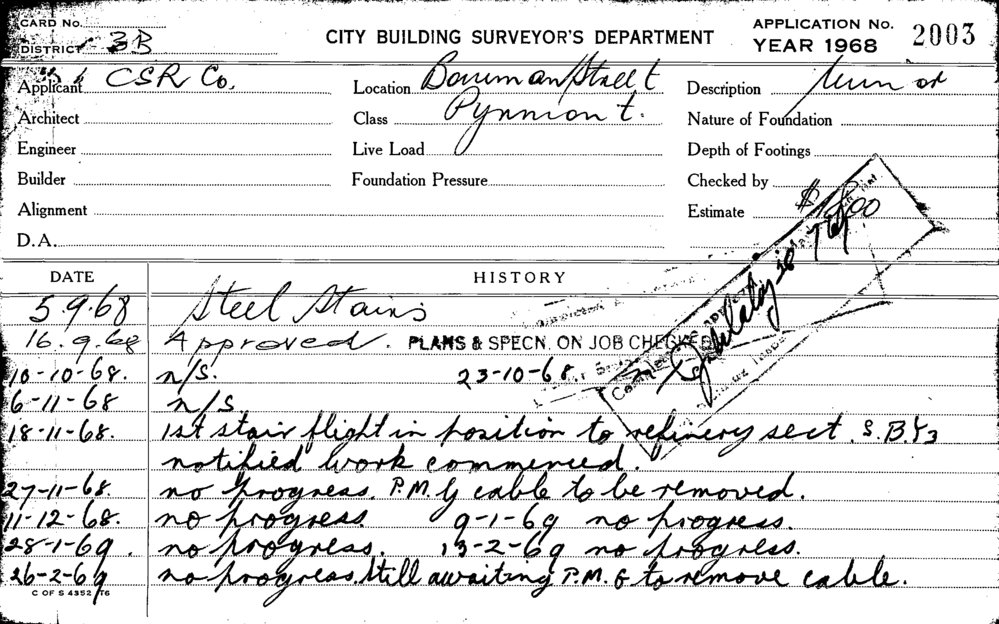 CARD No.
DISTRICT 3B
CITY BUILDING SURVEYOR'S DEPARTMENT
APPLICATION No. 2003
YEAR 1968
Applicant CSR Co.
Location Bowman Street
Description Minor
Architect
Class Pyrmont.
Nature of Foundation
Engineer
Live Load
Depth of Footings
Builder
Foundation Pressure
Checked by
Alignment
Estimate $
D.A.
DATE HISTORY
5.9.68 Steel Stairs
16.9.68 Approved. PLANS & SPECN. ON JOB CHECKED
10-10-68. n/s. 23-10-68.
6-11-68 n/s
18-11-68. 1st stair flight in position to refinery sect. S.B.
notified work commenced.
27-11-68. no progress. P.M.G cable to be removed.
11-12-68. no progress 9-1-69 no progress.
28-1-69. no progress. 13-2-69 no progress.
26-2-69 no progress. Still awaiting P.M.G to remove cable.
C OF S 4352